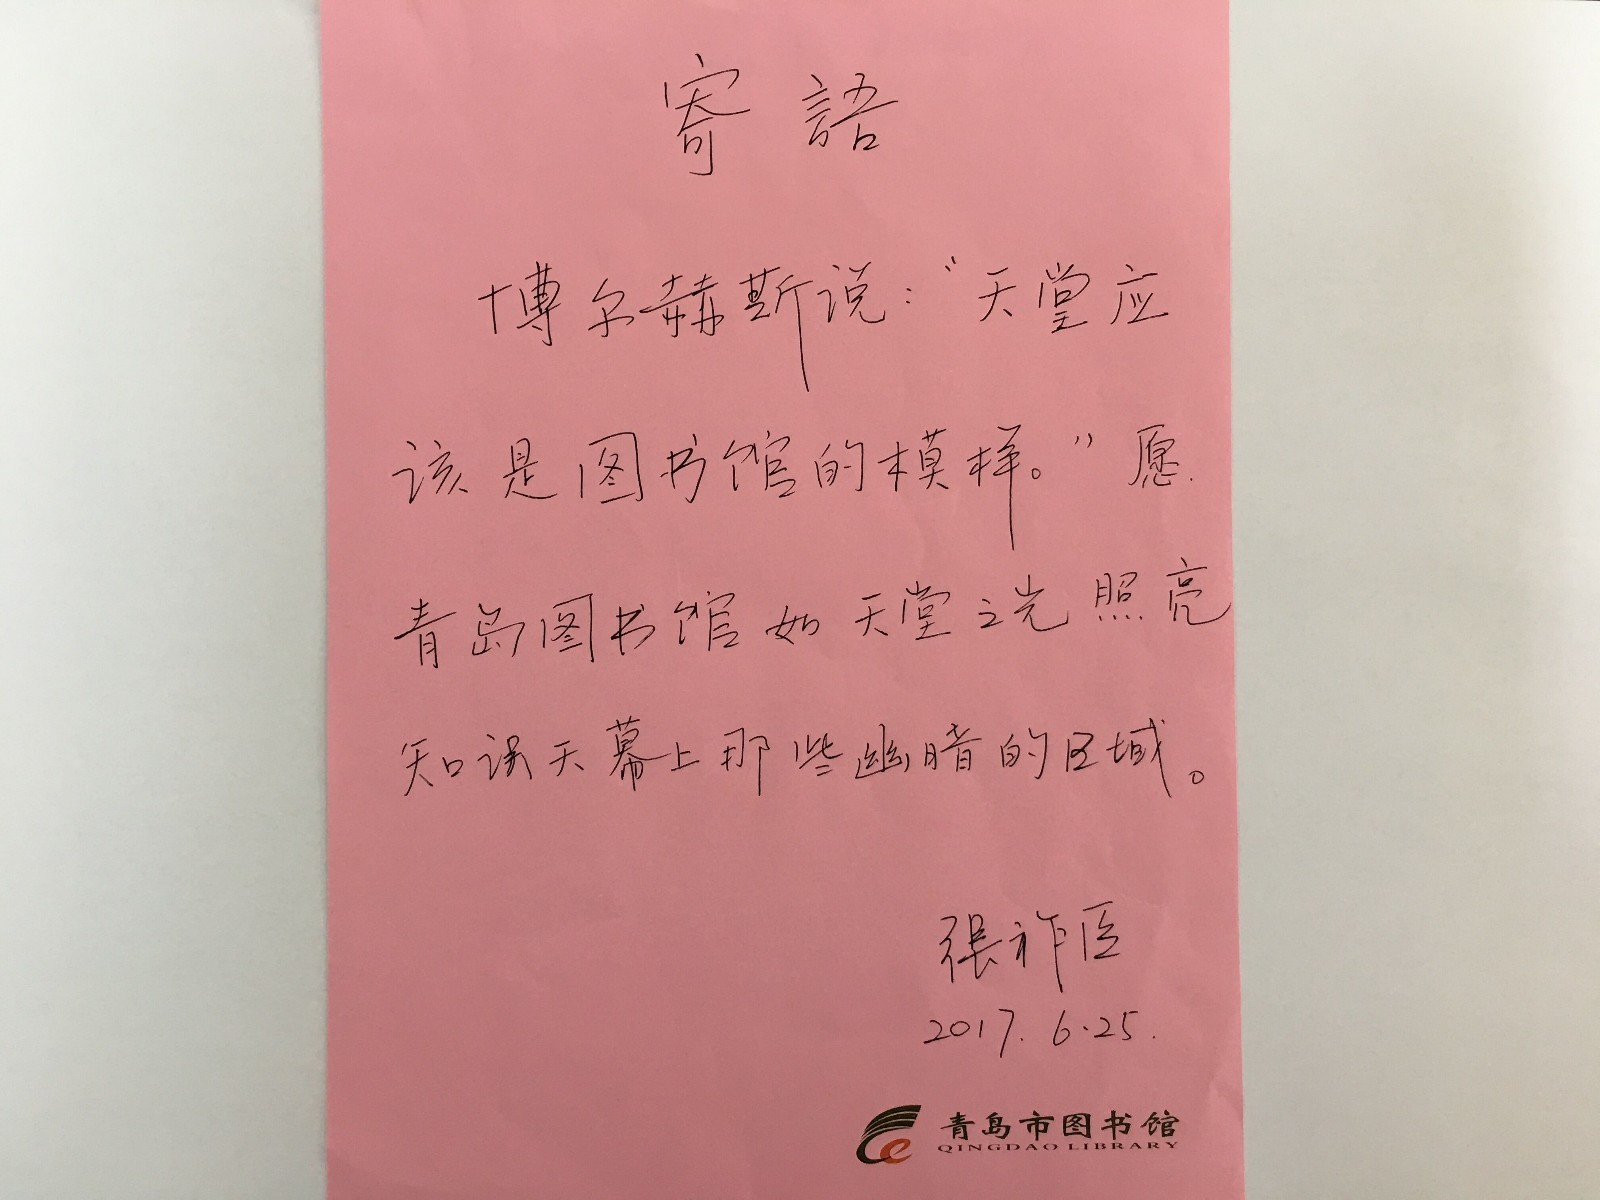 寄語
博尔赫斯说："天堂应
该是图书馆的模样。"愿
青岛图书馆如天堂之光照亮
知误天幕上那些幽暗的区域。
張祚臣
2017.6.25.
青岛市图书馆
QINGDAO LIBRARY